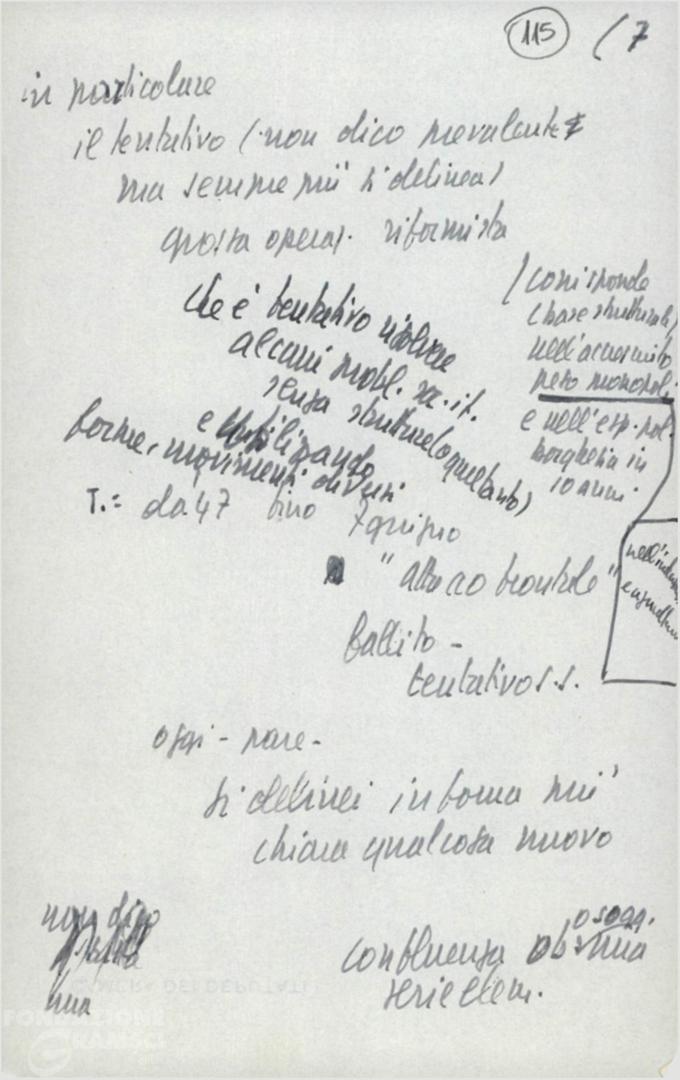 115 (7
in particolare
il tentativo (non dico prevalente
ma sempre più si delinea)
grossa operaz. riformista
che è tentativo risolvere
alcuni probl. soc. it.
senza strutture (o quel tanto)
e utilizzando
forme, movimenti diversi
(corrisponde
(base strutturale)
nell'accresciuto
peso monopol.
e nell'esp. pol.
borghesia in
10 anni.
T.: da 47 fino 7 giugno
"attacco frontale"
fallito -
tentativo s.s.
oggi - pare -
si delinei in forma più
chiara qualcosa nuovo
non dico
una
confluenza ob. o sogg. una
serie elem.
CAMERA DEI DEPUTATI
FONDAZIONE
GRAMSCI